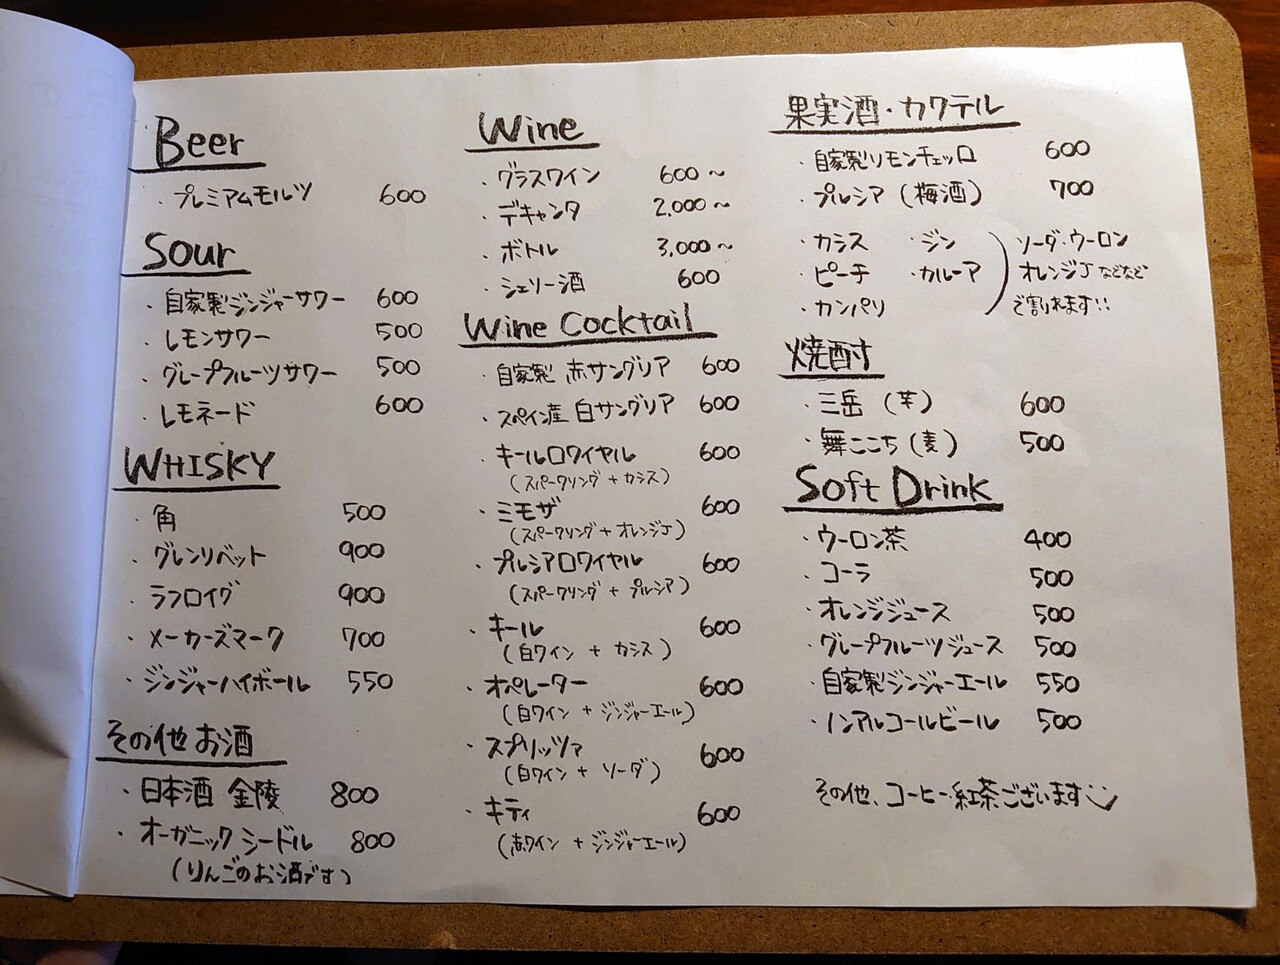 Beer
・プレミアムモルツ 600
Sour
・自家製ジンジャーサワー 600
・レモンサワー 500
・グレープフルーツサワー 500
・レモネード 600
WHISKY
・角 500
・グレンリベット 900
・ラフロイグ 900
・メーカーズマーク 700
・ジンジャーハイボール 550
その他お酒
・日本酒 金陵 800
・オーガニックシードル 800
(りんごのお酒です)
Wine
・グラスワイン 600～
・デキャンタ 2,000～
・ボトル 3,000～
・シェリー酒 600
Wine Cocktail
・自家製 赤サングリア 600
・スペイン産 白サングリア 600
・キールロワイヤル 600
(スパークリング + カシス)
・ミモザ 600
(スパークリング + オレンジJ)
・プルシアロワイヤル 600
(スパークリング + プルシア)
・キール 600
(白ワイン + カシス)
・オペレーター 600
(白ワイン + ジンジャーエール)
・スプリッツァ 600
(白ワイン + ソーダ)
・キティ 600
(赤ワイン + ジンジャーエール)
果実酒・カクテル
・自家製リモンチェッロ 600
・プルシア (梅酒) 700
・カシス ・ジン ソーダ・ウーロン
・ピーチ ・カルーア オレンジJなどなど
・カンパリ で割れます!!
焼酎
・三岳 (芋) 600
・舞ここち (麦) 500
Soft Drink
・ウーロン茶 400
・コーラ 500
・オレンジジュース 500
・グレープフルーツジュース 500
・自家製ジンジャーエール 550
・ノンアルコールビール 500
その他、コーヒー・紅茶ございます